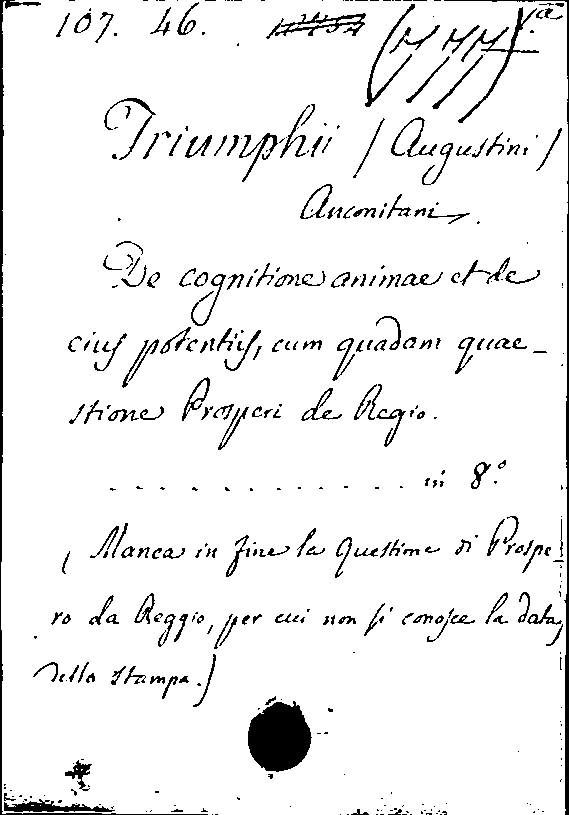 107. 46.
Triumphii / Augustini /
Anconitani.
De cognitione animae et de
eius potentiis, cum quadam quae-
stione Prosperi de Regio.
. . . . . . . . . . . . . in 8.º
( Manca in fine la Questione di Prospe-
ro da Reggio, per cui non si conosce la data
della stampa.)